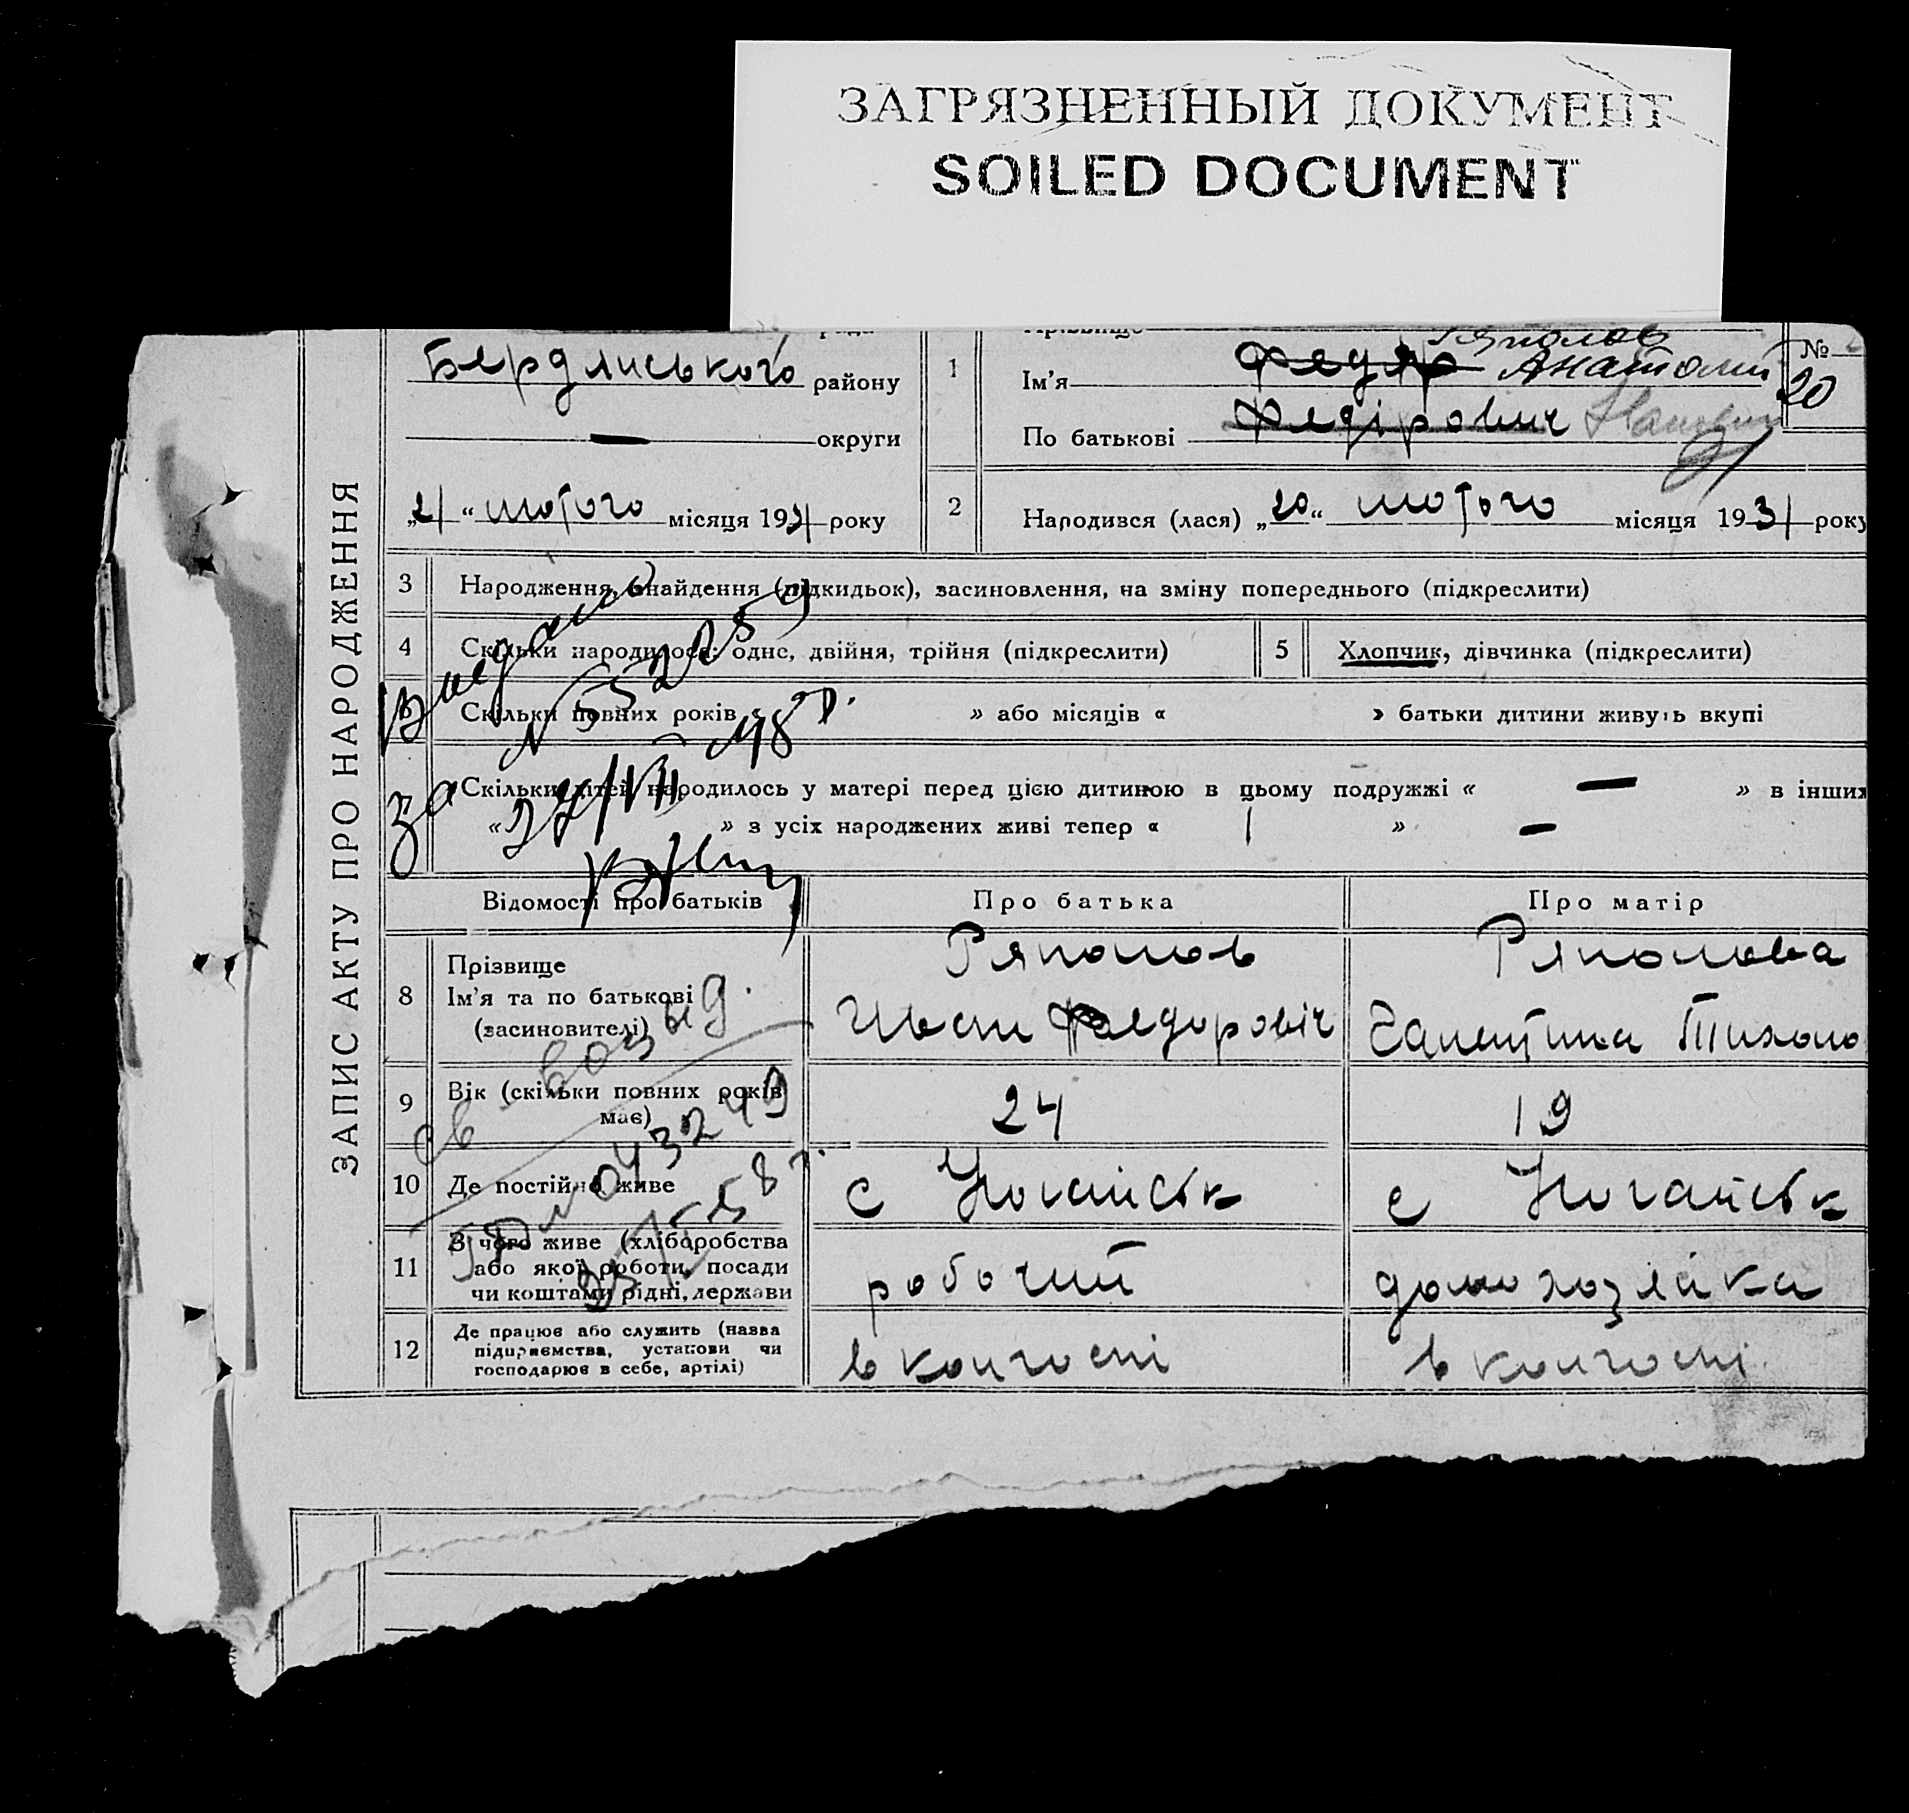 ЗАГРЯЗНЕННЫЙ ДОКУМЕНТ
SOILED DOCUMENT
ЗАПИС АКТУ ПРО НАРОДЖЕННЯ
Бердянського району
— округи
„21“ лютого місяця 1931 року
1
Прізвище Ряполов
Ім'я Федір Анатолий
По батькові Федірович
№
20
2 Народився (лася) „20“ лютого місяця 1931 року
3 Народження, знайдення (підкидьок), засиновлення, на зміну попереднього (підкреслити)
4 Скільки народилося: одне, двійня, трійня (підкреслити)
5 Хлопчик, дівчинка (підкреслити)
6 Скільки повних років « » або місяців « » батьки дитини живуть вкупі
Скільки дітей народилось у матері перед цією дитиною в цьому подружжі « — » в інших
« » з усіх народжених живі тепер « » —
Видано
за № 532259
27/VII 48 г.
Відомості про батьків Про батька Про матір
8 Прізвище
Ім'я та по батькові
(засиновителі)
Ряполов
Иван Федоровіч
Ряполова
Тихоно
9 Вік (скільки повних років
має)
24
19
10 Де постійно живе
с Ногайськ
с Ногайськ
11 З чого живе (хліборобства
або якої роботи, посади
чи коштами рідні, держави
робочий
домохозяйка
12 Де працює або служить (назва
підприємства, установи чи
господарює в себе, артілі)
в колгоспі
в колгоспі